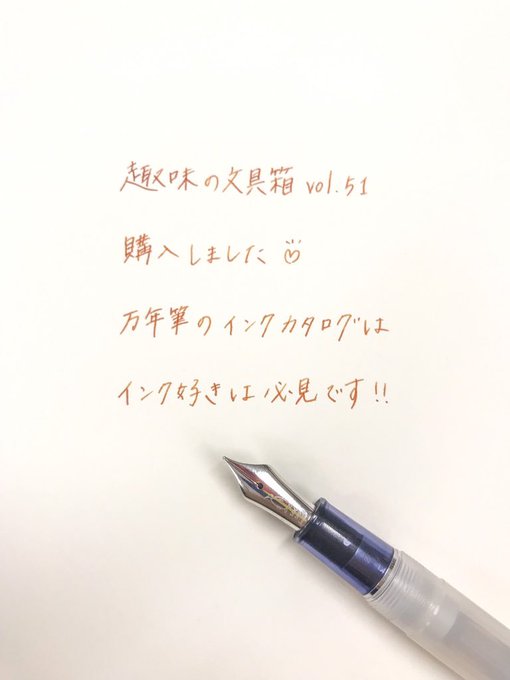 趣味の文具箱 vol.51
購入しました♡
万年筆のインクカタログは
インク好きは必見です!!